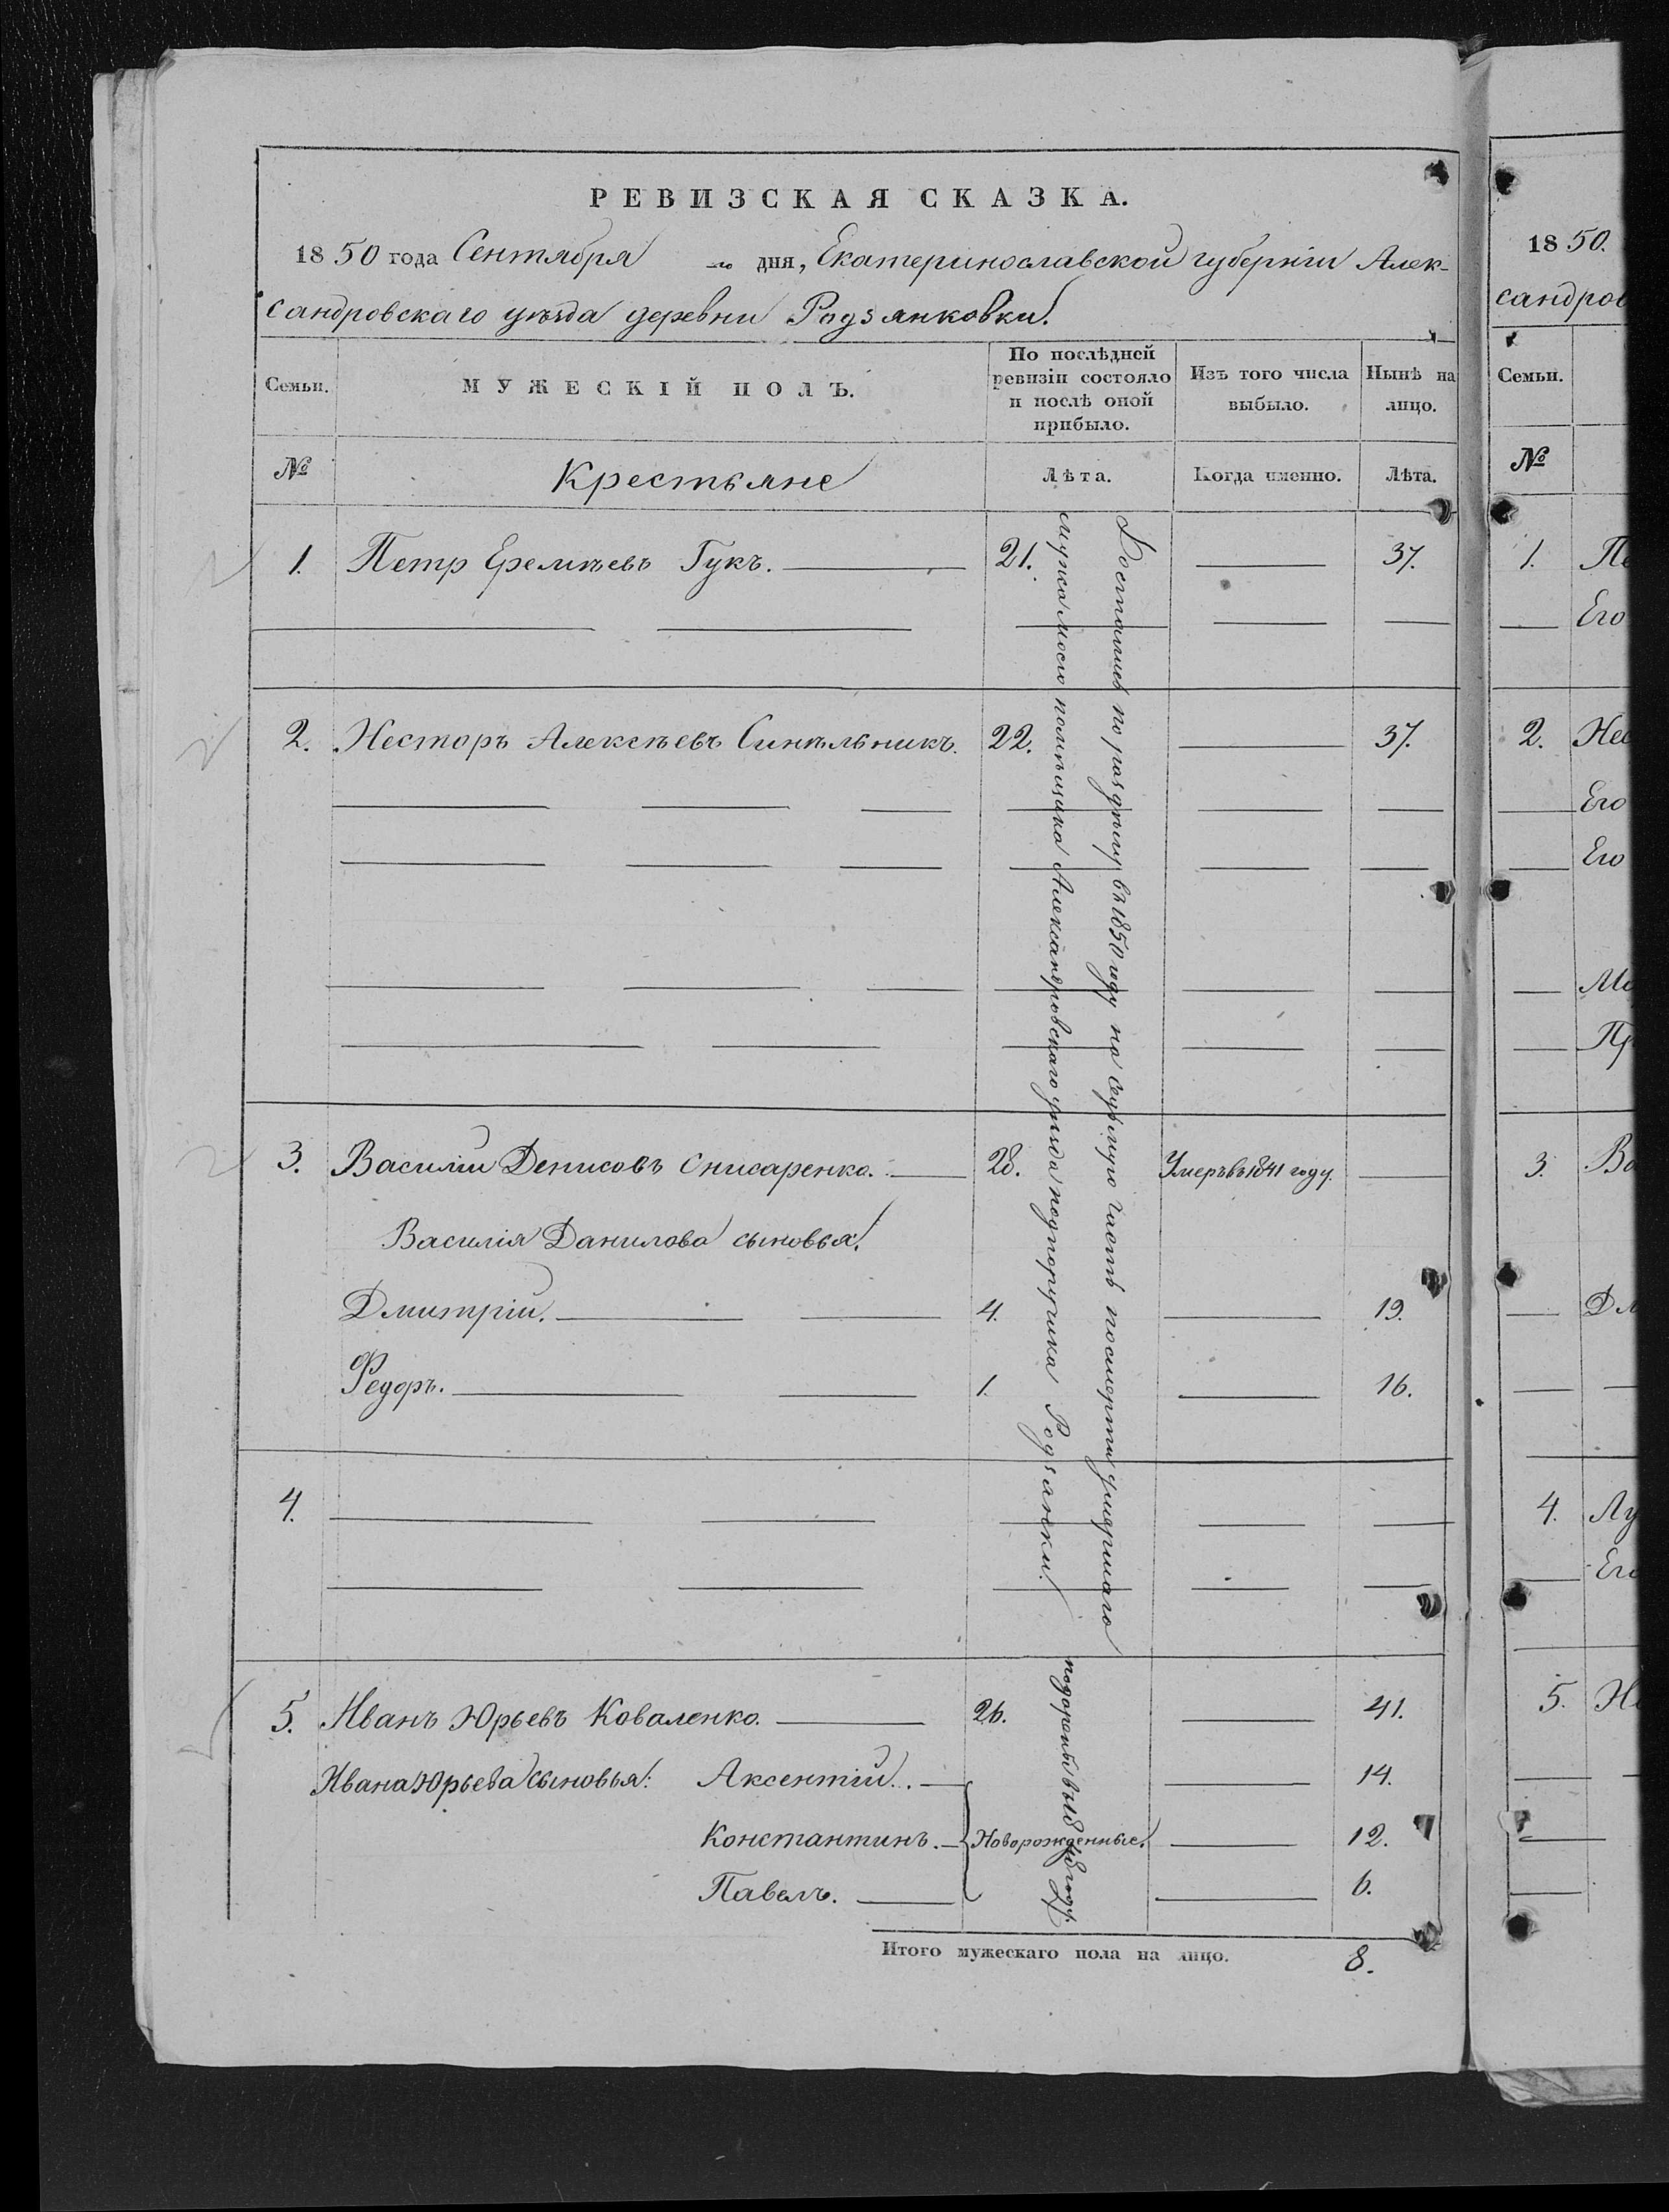 РЕВИЗСКАЯ СКАЗКА.
1850 года Сентября дня, Екатеринославской губерніи Алек-
сандровскаго уѣзда деревни Родзянковки.
Семьи.
МУЖЕСКІЙ ПОЛЪ.
По послѣдней ревизіи состояло и послѣ оной прибыло.
Изъ того числа выбыло.
Нынѣ на лицо.
№
Крестьяне
Лѣта.
Когда именно.
Лѣта.
1. Петр Еремѣевъ Гукъ. 21. 37.
2. Несторъ Алексѣевъ Синѣльникъ. 22. 37.
3. Василій Денисовъ Снисаренко. 28. Умеръ въ 1841 году.
Василія Данилова сыновья:
Дмитрій. 4. 19.
Федоръ. 1. 16.
4.
5. Иванъ Юрьевъ Коваленко. 26. 41.
Ивана Юрьева сыновья: Аксентій. 14.
Константинъ. Новорожденные. 12.
Павелъ. 6.
Достались по раздѣлу въ 1850 году на седьмую часть по смерти умершаго
мужа моего помѣщика Александровскаго уѣзда подпоручика Родзянки.
Итого мужескаго пола на лицо. 8.
1850.
сандров
Семьи.
№
1. Пе
Его
2. Нес
Его
Его
3. Ва
Дм
4. Лу
Его
5.